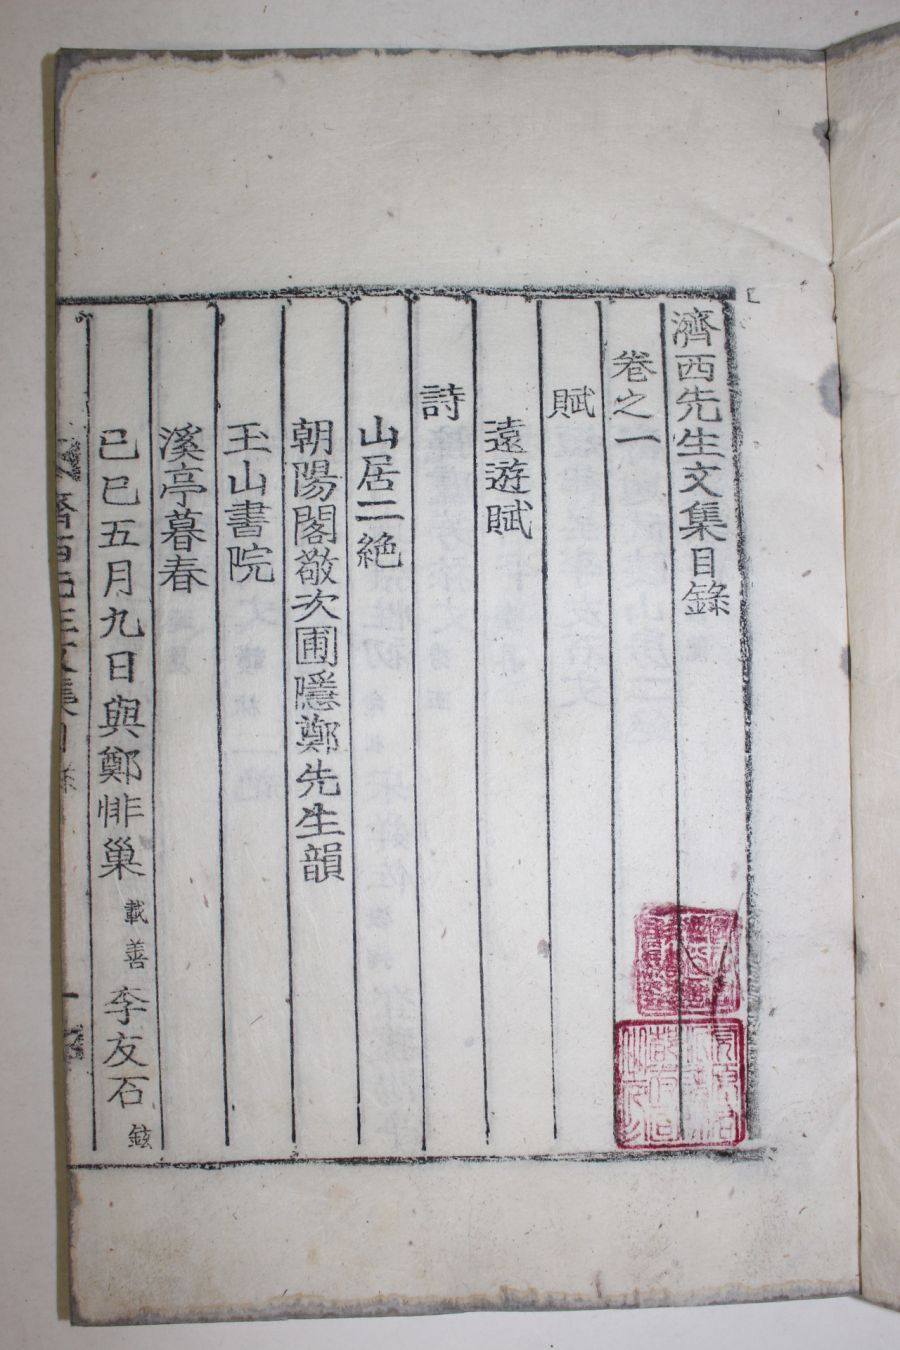 濟西先生文集目錄
卷之一
賦
遠遊賦
詩
山居二絶
朝陽閣敬次圃隱鄭先生韻
玉山書院
溪亭暮春
己巳五月九日與鄭悱巢載善李友石鉉